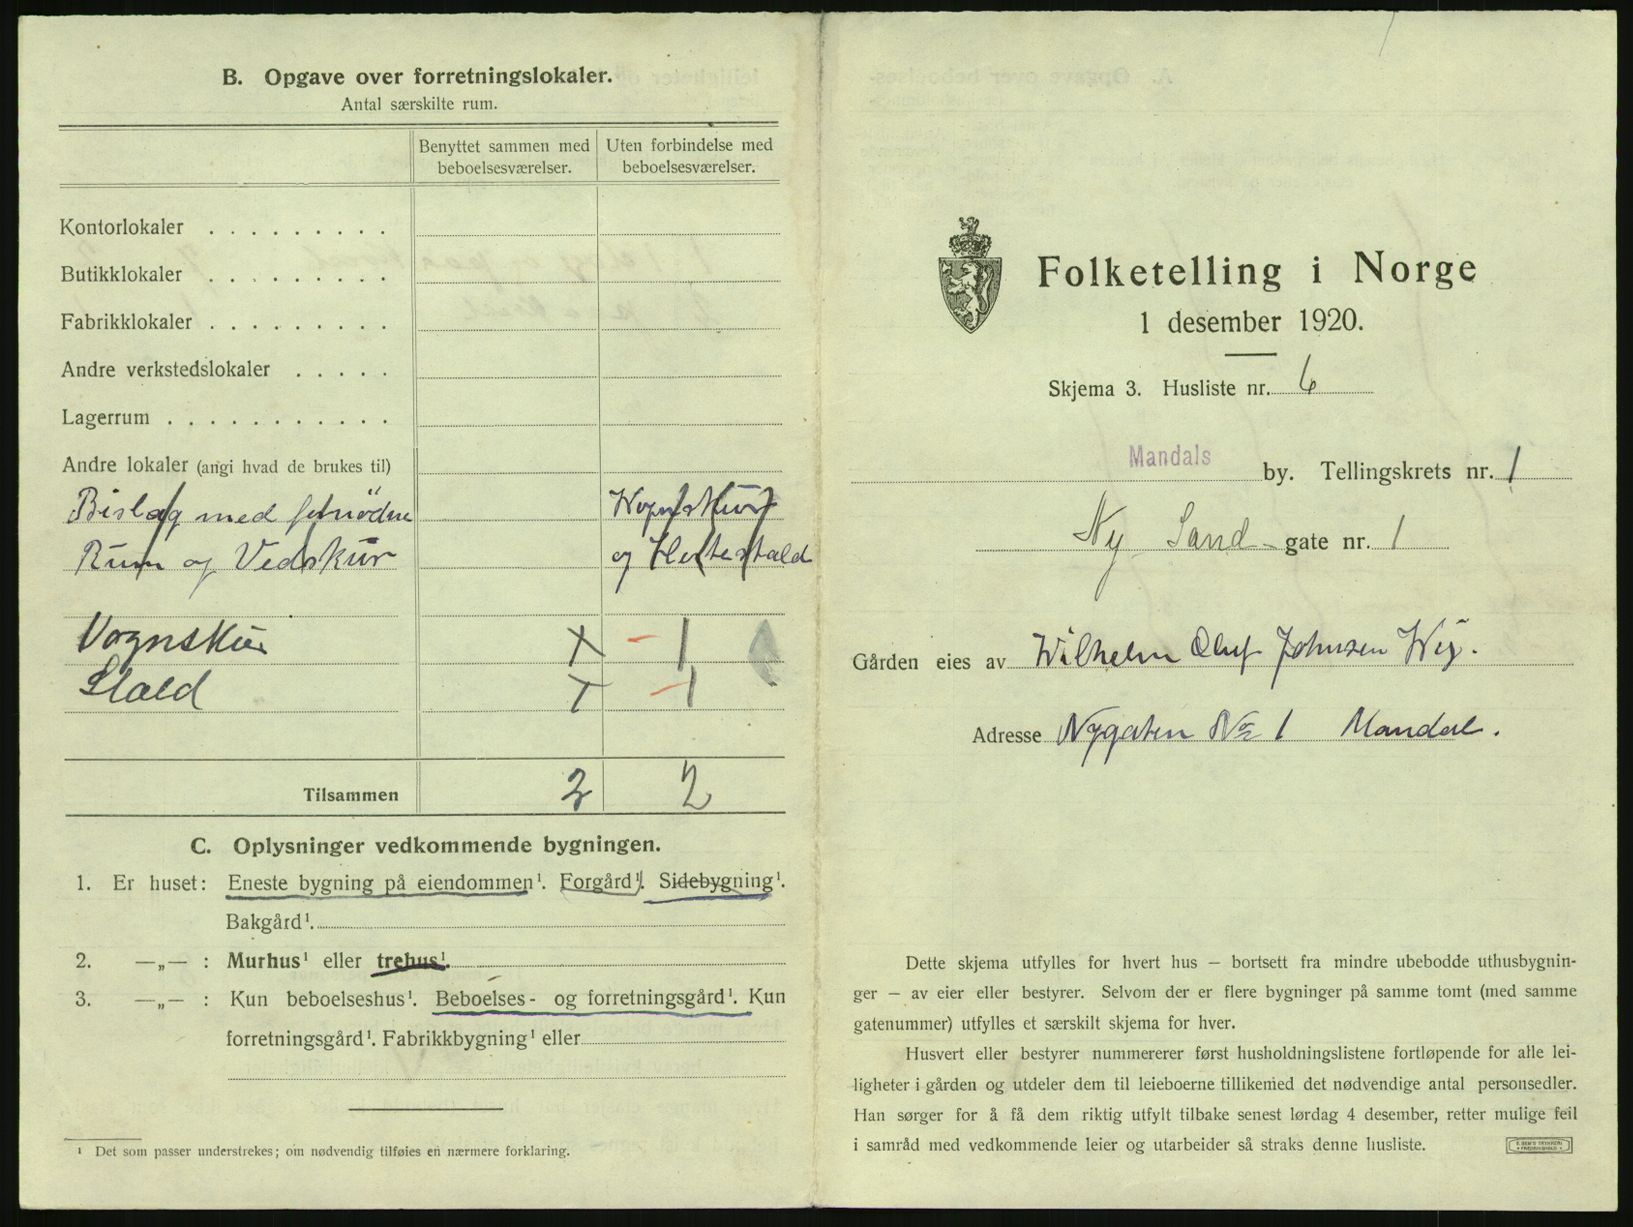 B. Opgave over forretningslokaler.
Antal særskilte rum.
Benyttet sammen med beboelsesværelser.
Uten forbindelse med beboelsesværelser.
Kontorlokaler . . . . . . . . .
Butikklokaler . . . . . . . . .
Fabrikklokaler . . . . . . . . .
Andre verkstedslokaler . . . . .
Lagerrum . . . . . . . . . . .
Andre lokaler (angi hvad de brukes til)
Bislag med Wognskur
Rum og Vedskur og Hestestald
Vognskur × – 1
Stald × – 1
Tilsammen 2 2
C. Oplysninger vedkommende bygningen.
1. Er huset: Eneste bygning på eiendommen¹. Forgård¹. Sidebygning¹.
Bakgård¹.
2. —„— : Murhus¹ eller trehus¹.
3. —„— : Kun beboelseshus¹. Beboelses- og forretningsgård¹. Kun
forretningsgård¹. Fabrikkbygning¹ eller
¹ Det som passer understrekes; om nødvendig tilføies en nærmere forklaring.
Folketelling i Norge
1 desember 1920.
Skjema 3. Husliste nr. 6
Mandals by. Tellingskrets nr. 1
Ny Sand - gate nr. 1
Gården eies av Wilhelm Oluf Johnsen Wig.
Adresse Nygaten No 1 Mandal.
Dette skjema utfylles for hvert hus — bortsett fra mindre ubebodde uthusbygnin-
ger — av eier eller bestyrer. Selvom der er flere bygninger på samme tomt (med samme
gatenummer) utfylles et særskilt skjema for hver.
Husvert eller bestyrer nummererer først husholdningslistene fortløpende for alle lei-
ligheter i gården og utdeler dem til leieboerne tillikemed det nødvendige antal personsedler.
Han sørger for å få dem riktig utfylt tilbake senest lørdag 4 desember, retter mulige feil
i samråd med vedkommende leier og utarbeider så straks denne husliste.